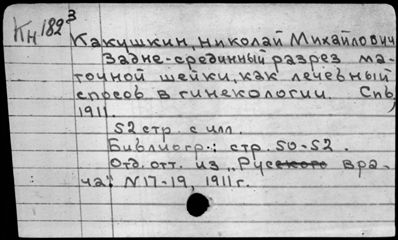 Кн182³
Какушкин, Николай Михайлович
Задне-срединный разрез ма-
точной шейки, как лечебный
способ в гинекологии. Спб,
1911.
52 стр. с илл.
Библиогр.: стр. 50-52.
Отд. отт. из „Русского вра-
ча": N17-19, 1911 г.